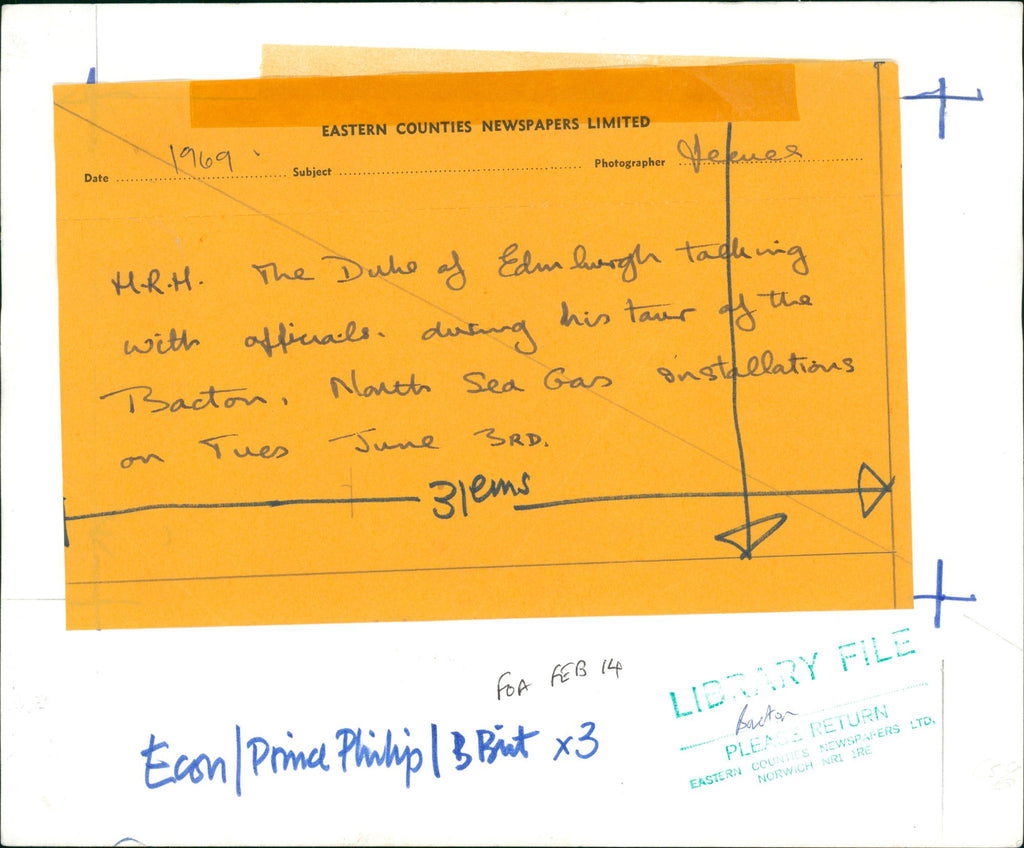 EASTERN COUNTIES NEWSPAPERS LIMITED
Date 1969. Subject Photographer
H.R.H. The Duke of Edinburgh talking
with officials. during his tour of the
Bacton, North Sea Gas installations
on Tues June 3RD.
31 ems
FOA FEB 14
LIBRARY FILE
Bacton
PLEASE RETURN
EASTERN COUNTIES NEWSPAPERS LTD.
NORWICH NR1 1RE
Econ/Prince Philip/B Brit x3